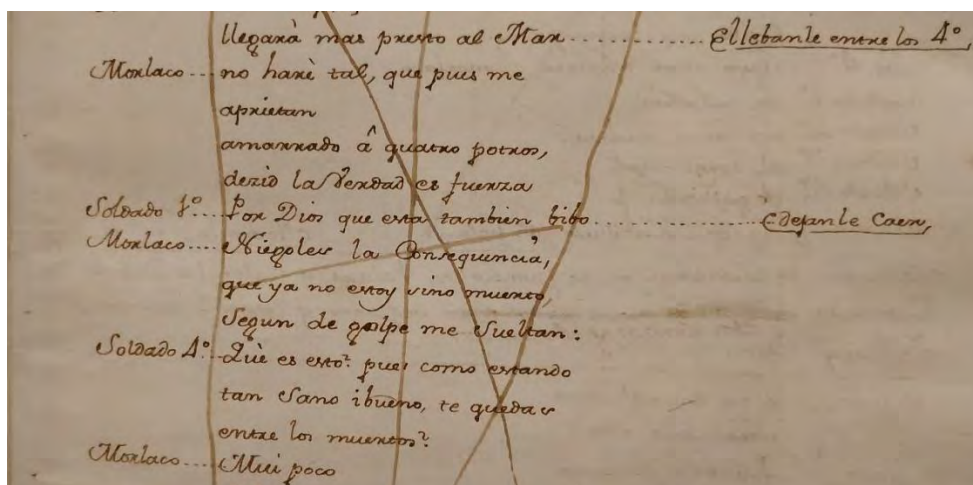 llegarà mas presto al Mar .......... Ellebanle entre los 4º,
Morlaco... no harè tal, que pues me
aprietan
amarrado â quatro potros,
dezid la Verdad es fuerza
Soldado 1º... Por Dios que esta tambien bibo .......... Edejanle Caer,
Morlaco.... Niegoles la Consequencia,
que ya no estoy sino muerto,
Segun de golpe me Sueltan:
Soldado 4º.. Què es esto? pues como estando
tan Sano ibueno, te quedas
entre los muertos?
Morlaco.... Mui poco